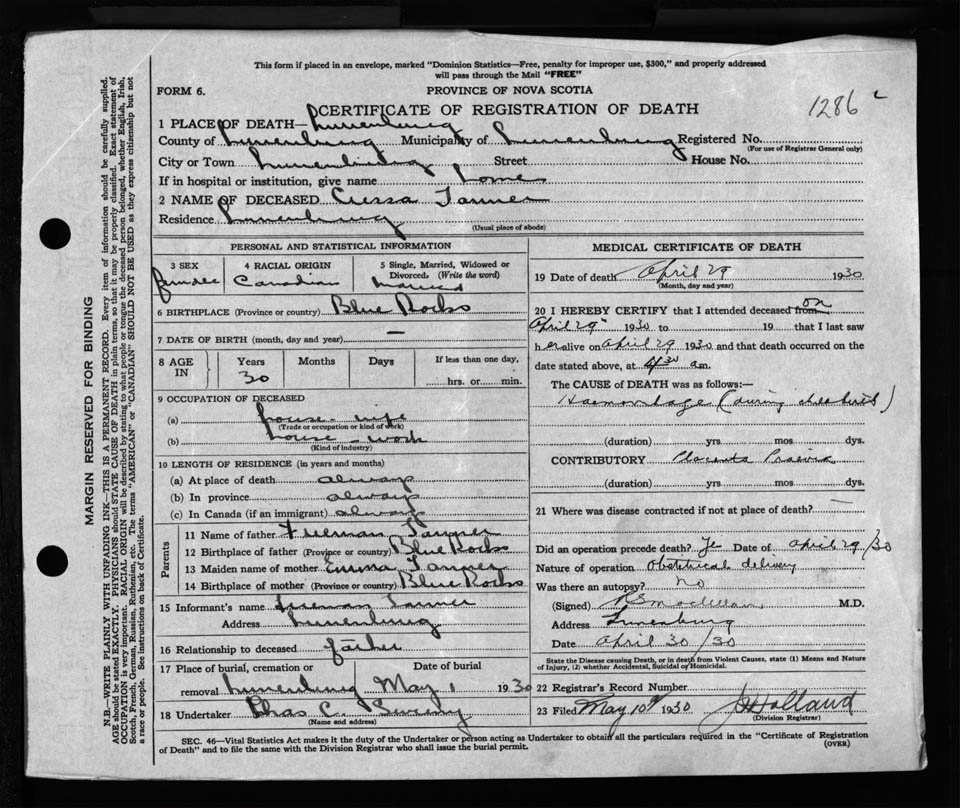 This form if placed in an envelope, marked "Dominion Statistics—Free, penalty for improper use, $300," and properly addressed
will pass through the Mail "FREE"
FORM 6.
PROVINCE OF NOVA SCOTIA
1286
CERTIFICATE OF REGISTRATION OF DEATH
1 PLACE OF DEATH— Lunenburg
County of Lunenburg Municipality of Lunenburg Registered No.
(For use of Registrar General only)
City or Town Lunenburg Street House No.
If in hospital or institution, give name home
2 NAME OF DECEASED Cressa Tanner
Residence Lunenburg
(Usual place of abode)
PERSONAL AND STATISTICAL INFORMATION
3 SEX 4 RACIAL ORIGIN 5 Single, Married, Widowed or
Divorced. (Write the word)
female Canadian married
6 BIRTHPLACE (Province or country) Blue Rocks
7 DATE OF BIRTH (month, day and year) —
8 AGE IN Years Months Days If less than one day,
30 hrs. or min.
9 OCCUPATION OF DECEASED
(a) house-wife
(Trade or occupation or kind of work)
(b) house-work
(Kind of industry)
10 LENGTH OF RESIDENCE (in years and months)
(a) At place of death always
(b) In province always
(c) In Canada (if an immigrant) always
Parents
11 Name of father Freeman Tanner
12 Birthplace of father (Province or country) Blue Rocks
13 Maiden name of mother Emma Tanner
14 Birthplace of mother (Province or country) Blue Rocks
15 Informant's name Freeman Tanner
Address Lunenburg
16 Relationship to deceased father
17 Place of burial, cremation or Date of burial
removal Lunenburg May 1 1930
18 Undertaker Chas C. Sweeny
(Name and address)
MEDICAL CERTIFICATE OF DEATH
19 Date of death April 29 1930
(Month, day and year)
20 I HEREBY CERTIFY that I attended deceased from on
April 29 1930 to 19 that I last saw
her alive on April 29 1930 and that death occurred on the
date stated above, at 4 30 am.
The CAUSE OF DEATH was as follows:—
Haemorrhage (during childbirth)
(duration) yrs mos dys.
CONTRIBUTORY Placenta Praevia
(duration) yrs. mos. dys.
21 Where was disease contracted if not at place of death? —
Did an operation precede death? Yes Date of April 29/30
Nature of operation Obstetrical delivery
Was there an autopsy? no
(Signed) M.D.
Address Lunenburg
Date April 30/30
State the Disease causing Death, or in death from Violent Causes, state (1) Means and Nature
of Injury, (2) whether Accidental, Suicidal or Homicidal.
22 Registrar's Record Number
23 Filed May 10th 1930 Holland
(Division Registrar)
SEC. 46—Vital Statistics Act makes it the duty of the Undertaker or person acting as Undertaker to obtain all the particulars required in the "Certificate of Registration
of Death" and to file the same with the Division Registrar who shall issue the burial permit.
(OVER)
MARGIN RESERVED FOR BINDING
N.B.—WRITE PLAINLY WITH UNFADING INK—THIS IS A PERMANENT RECORD. Every item of information should be carefully supplied.
AGE should be stated EXACTLY. PHYSICIANS should STATE CAUSE OF DEATH in plain terms, so that it may be properly classified. Exact statement of
OCCUPATION is very important. RACIAL ORIGIN will be described by stating to what people or tongue the deceased person belonged, whether English, Irish,
Scotch, French, German, Russian, Ruthenian, etc. The terms "AMERICAN" or "CANADIAN" SHOULD NOT BE USED as they express citizenship but not
a race or people. See instructions on back of Certificate.